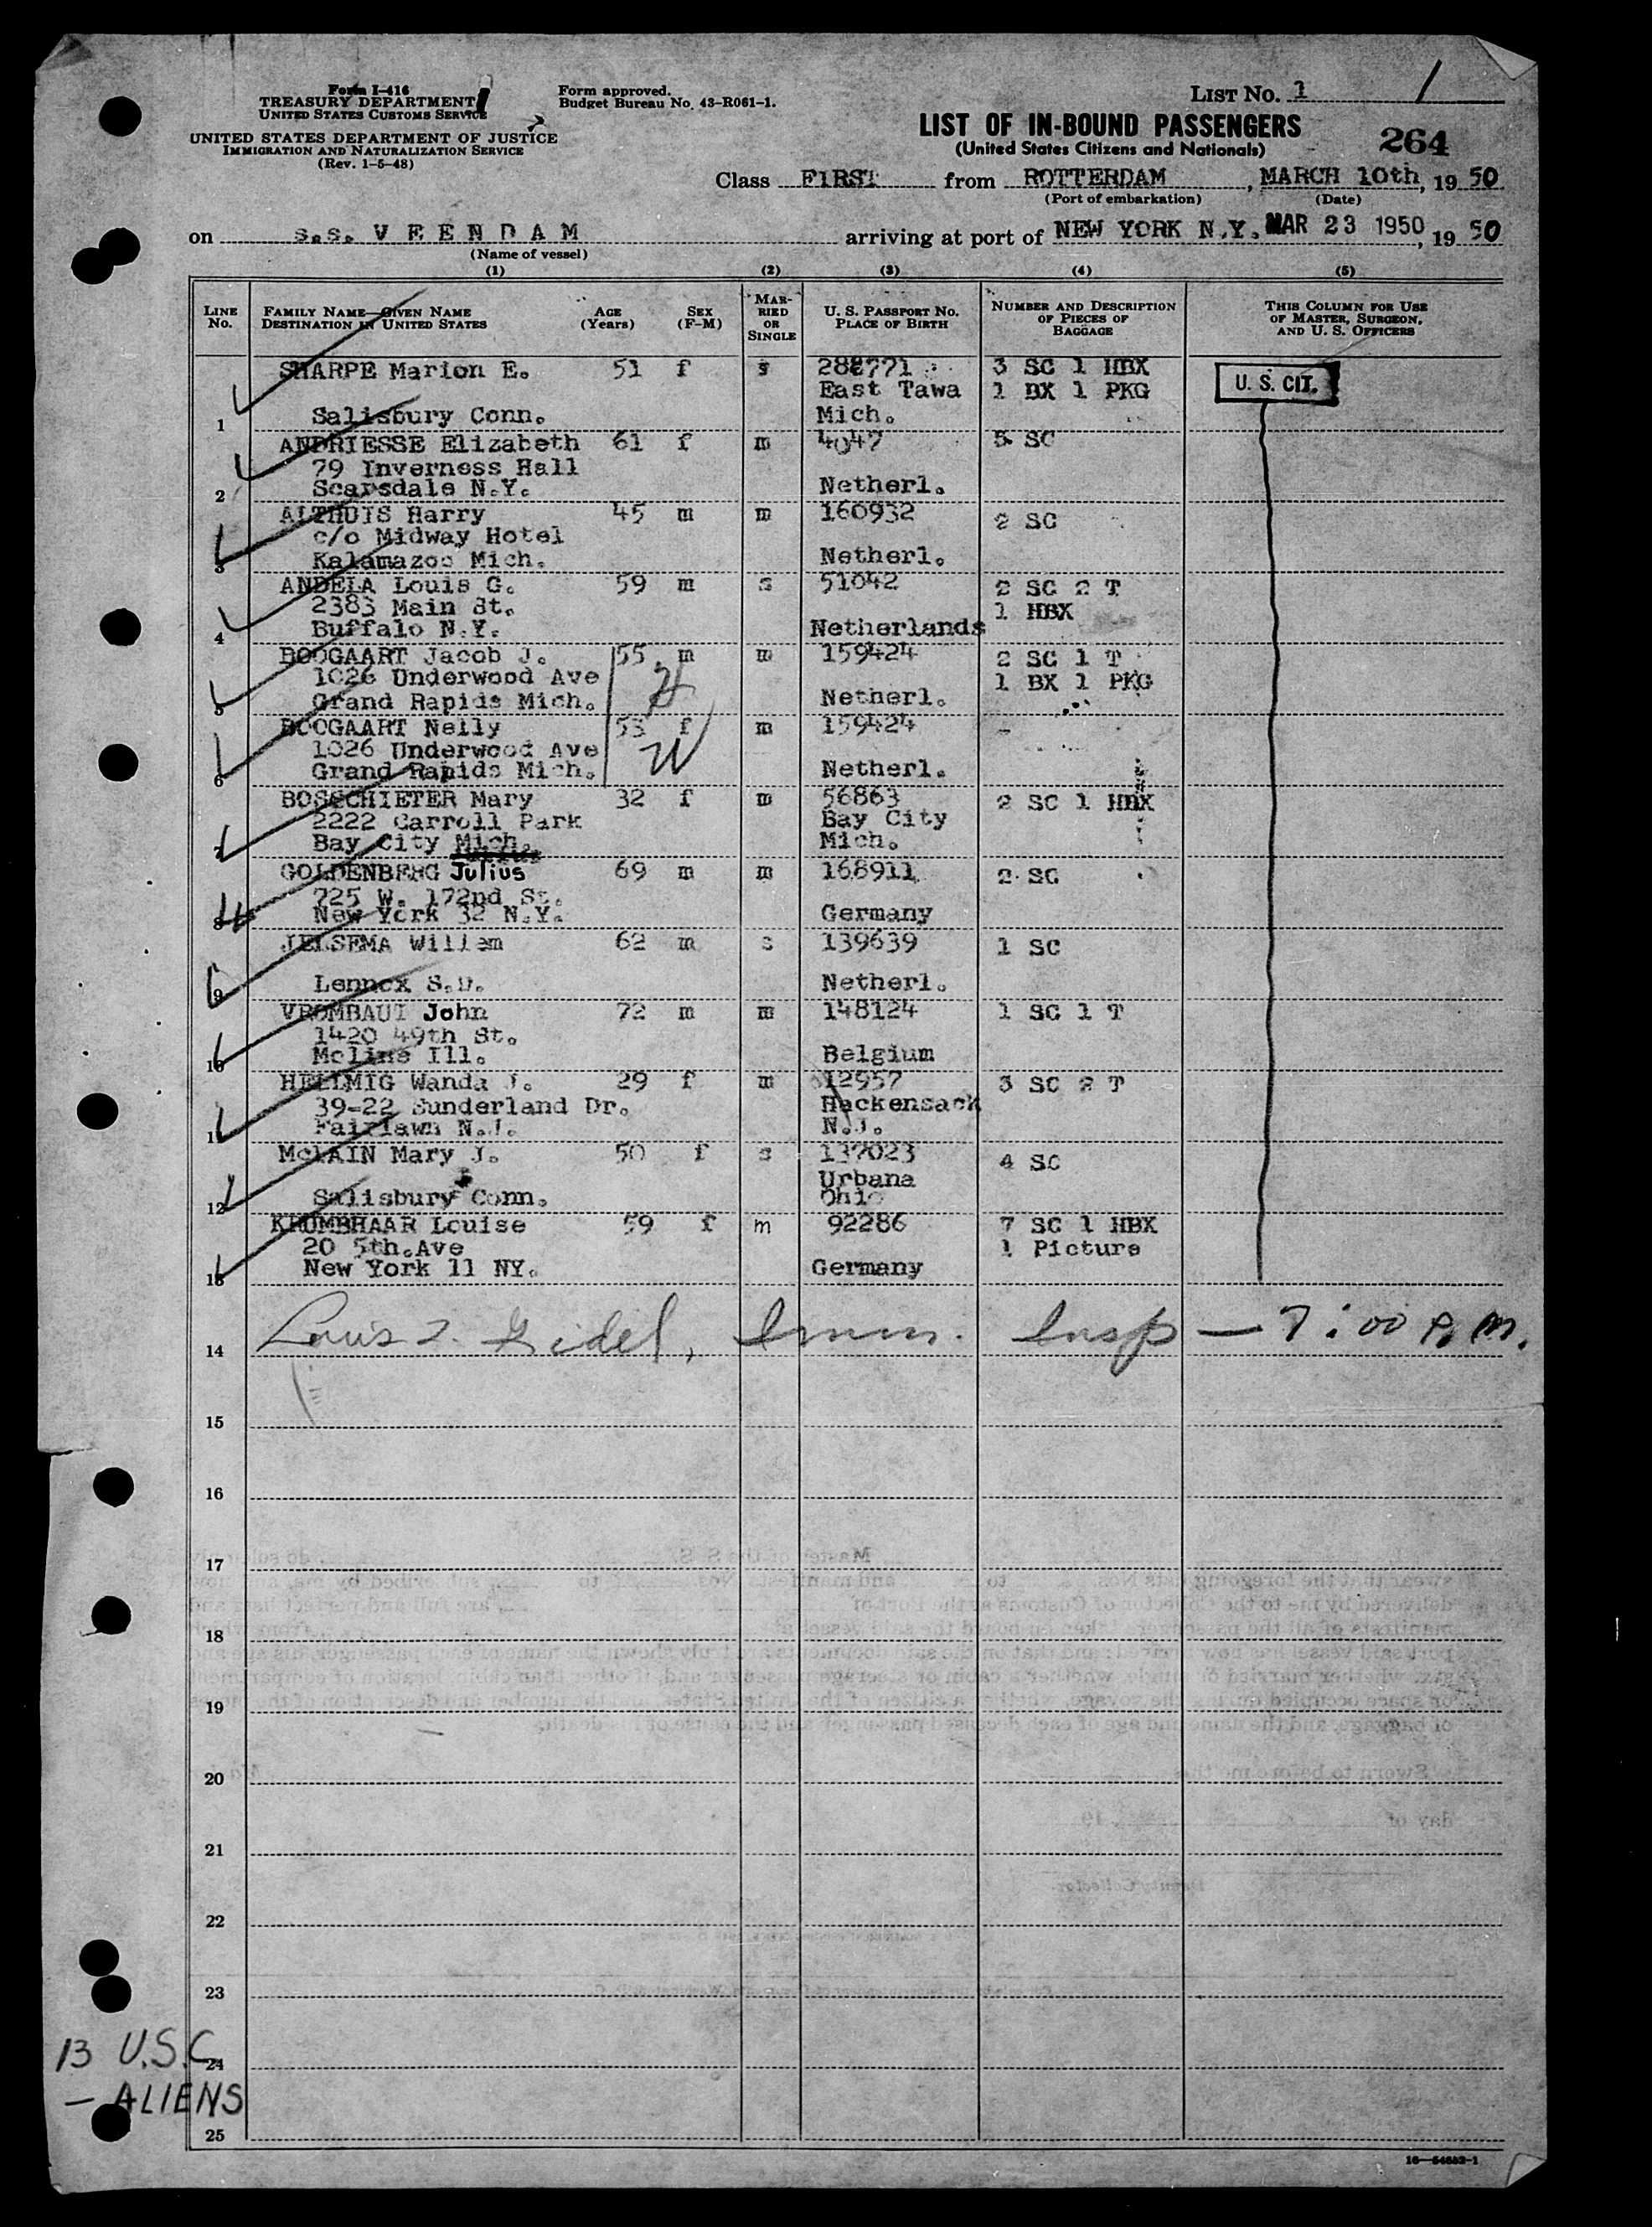 Form I-416
TREASURY DEPARTMENT
UNITED STATES CUSTOMS SERVICE
UNITED STATES DEPARTMENT OF JUSTICE
IMMIGRATION AND NATURALIZATION SERVICE
(Rev. 1-5-48)
Form approved.
Budget Bureau No. 43-R061-1.
LIST NO. 1 1
LIST OF IN-BOUND PASSENGERS
(United States Citizens and Nationals)
264
Class FIRST from ROTTERDAM, MARCH 10th, 19 50
(Port of embarkation) (Date)
on s.s. VEENDAM arriving at port of NEW YORK N.Y. MAR 23 1950, 19 50
(Name of vessel)
(1) (2) (3) (4) (5)
LINE NO. FAMILY NAME—GIVEN NAME DESTINATION IN UNITED STATES AGE (Years) SEX (F-M) MARRIED OR SINGLE U. S. PASSPORT NO. PLACE OF BIRTH NUMBER AND DESCRIPTION OF PIECES OF BAGGAGE THIS COLUMN FOR USE OF MASTER, SURGEON, AND U. S. OFFICERS
SHARPE Marion E. 51 f s 288771 3 SC 1 HBX U. S. CIT.
East Tawa 1 BX 1 PKG
1 Salisbury Conn. Mich.
ANDRIESSE Elizabeth 61 f m 4047 5 SC
79 Inverness Hall
2 Scarsdale N.Y. Netherl.
ALTHUIS Harry 45 m m 160932 2 SC
c/o Midway Hotel
3 Kalamazoo Mich. Netherl.
ANDELA Louis G. 59 m s 51042 2 SC 2 T
2383 Main St. 1 HBX
4 Buffalo N.Y. Netherlands
BOOGAART Jacob J. 55 m m 159424 2 SC 1 T
1026 Underwood Ave 1 BX 1 PKG
5 Grand Rapids Mich. H Netherl.
BOOGAART Nelly 53 f m 159424
1026 Underwood Ave W
6 Grand Rapids Mich. Netherl.
BOSSCHIETER Mary 32 f m 56863 2 SC 1 HBX
2222 Carroll Park Bay City
7 Bay City Mich. Mich.
GOLDENBERG Julius 69 m m 168911 2 SC
725 W. 172nd St.
8 New York 32 N.Y. Germany
JELSEMA Willem 62 m s 139639 1 SC
9 Lennox S.D. Netherl.
VROMBAUT John 72 m m 148124 1 SC 1 T
1420 49th St.
10 Moline Ill. Belgium
HELLMIG Wanda J. 29 f m 12957 3 SC 2 T
39-22 Sunderland Dr. Hackensack
11 Fairlawn N.J. N.J.
McLAIN Mary J. 50 f s 137023 4 SC
Urbana
12 Salisbury Conn. Ohio
KRUMBHAAR Louise 59 f m 92286 7 SC 1 HBX
20 5th.Ave 1 Picture
13 New York 11 NY. Germany
14 Louis J. Gidel, Imm. Insp — 7:00 P.M.
15
16
17
18
19
20
21
22
23
24
25
13 U.S.C.
— ALIENS
16—54652-1